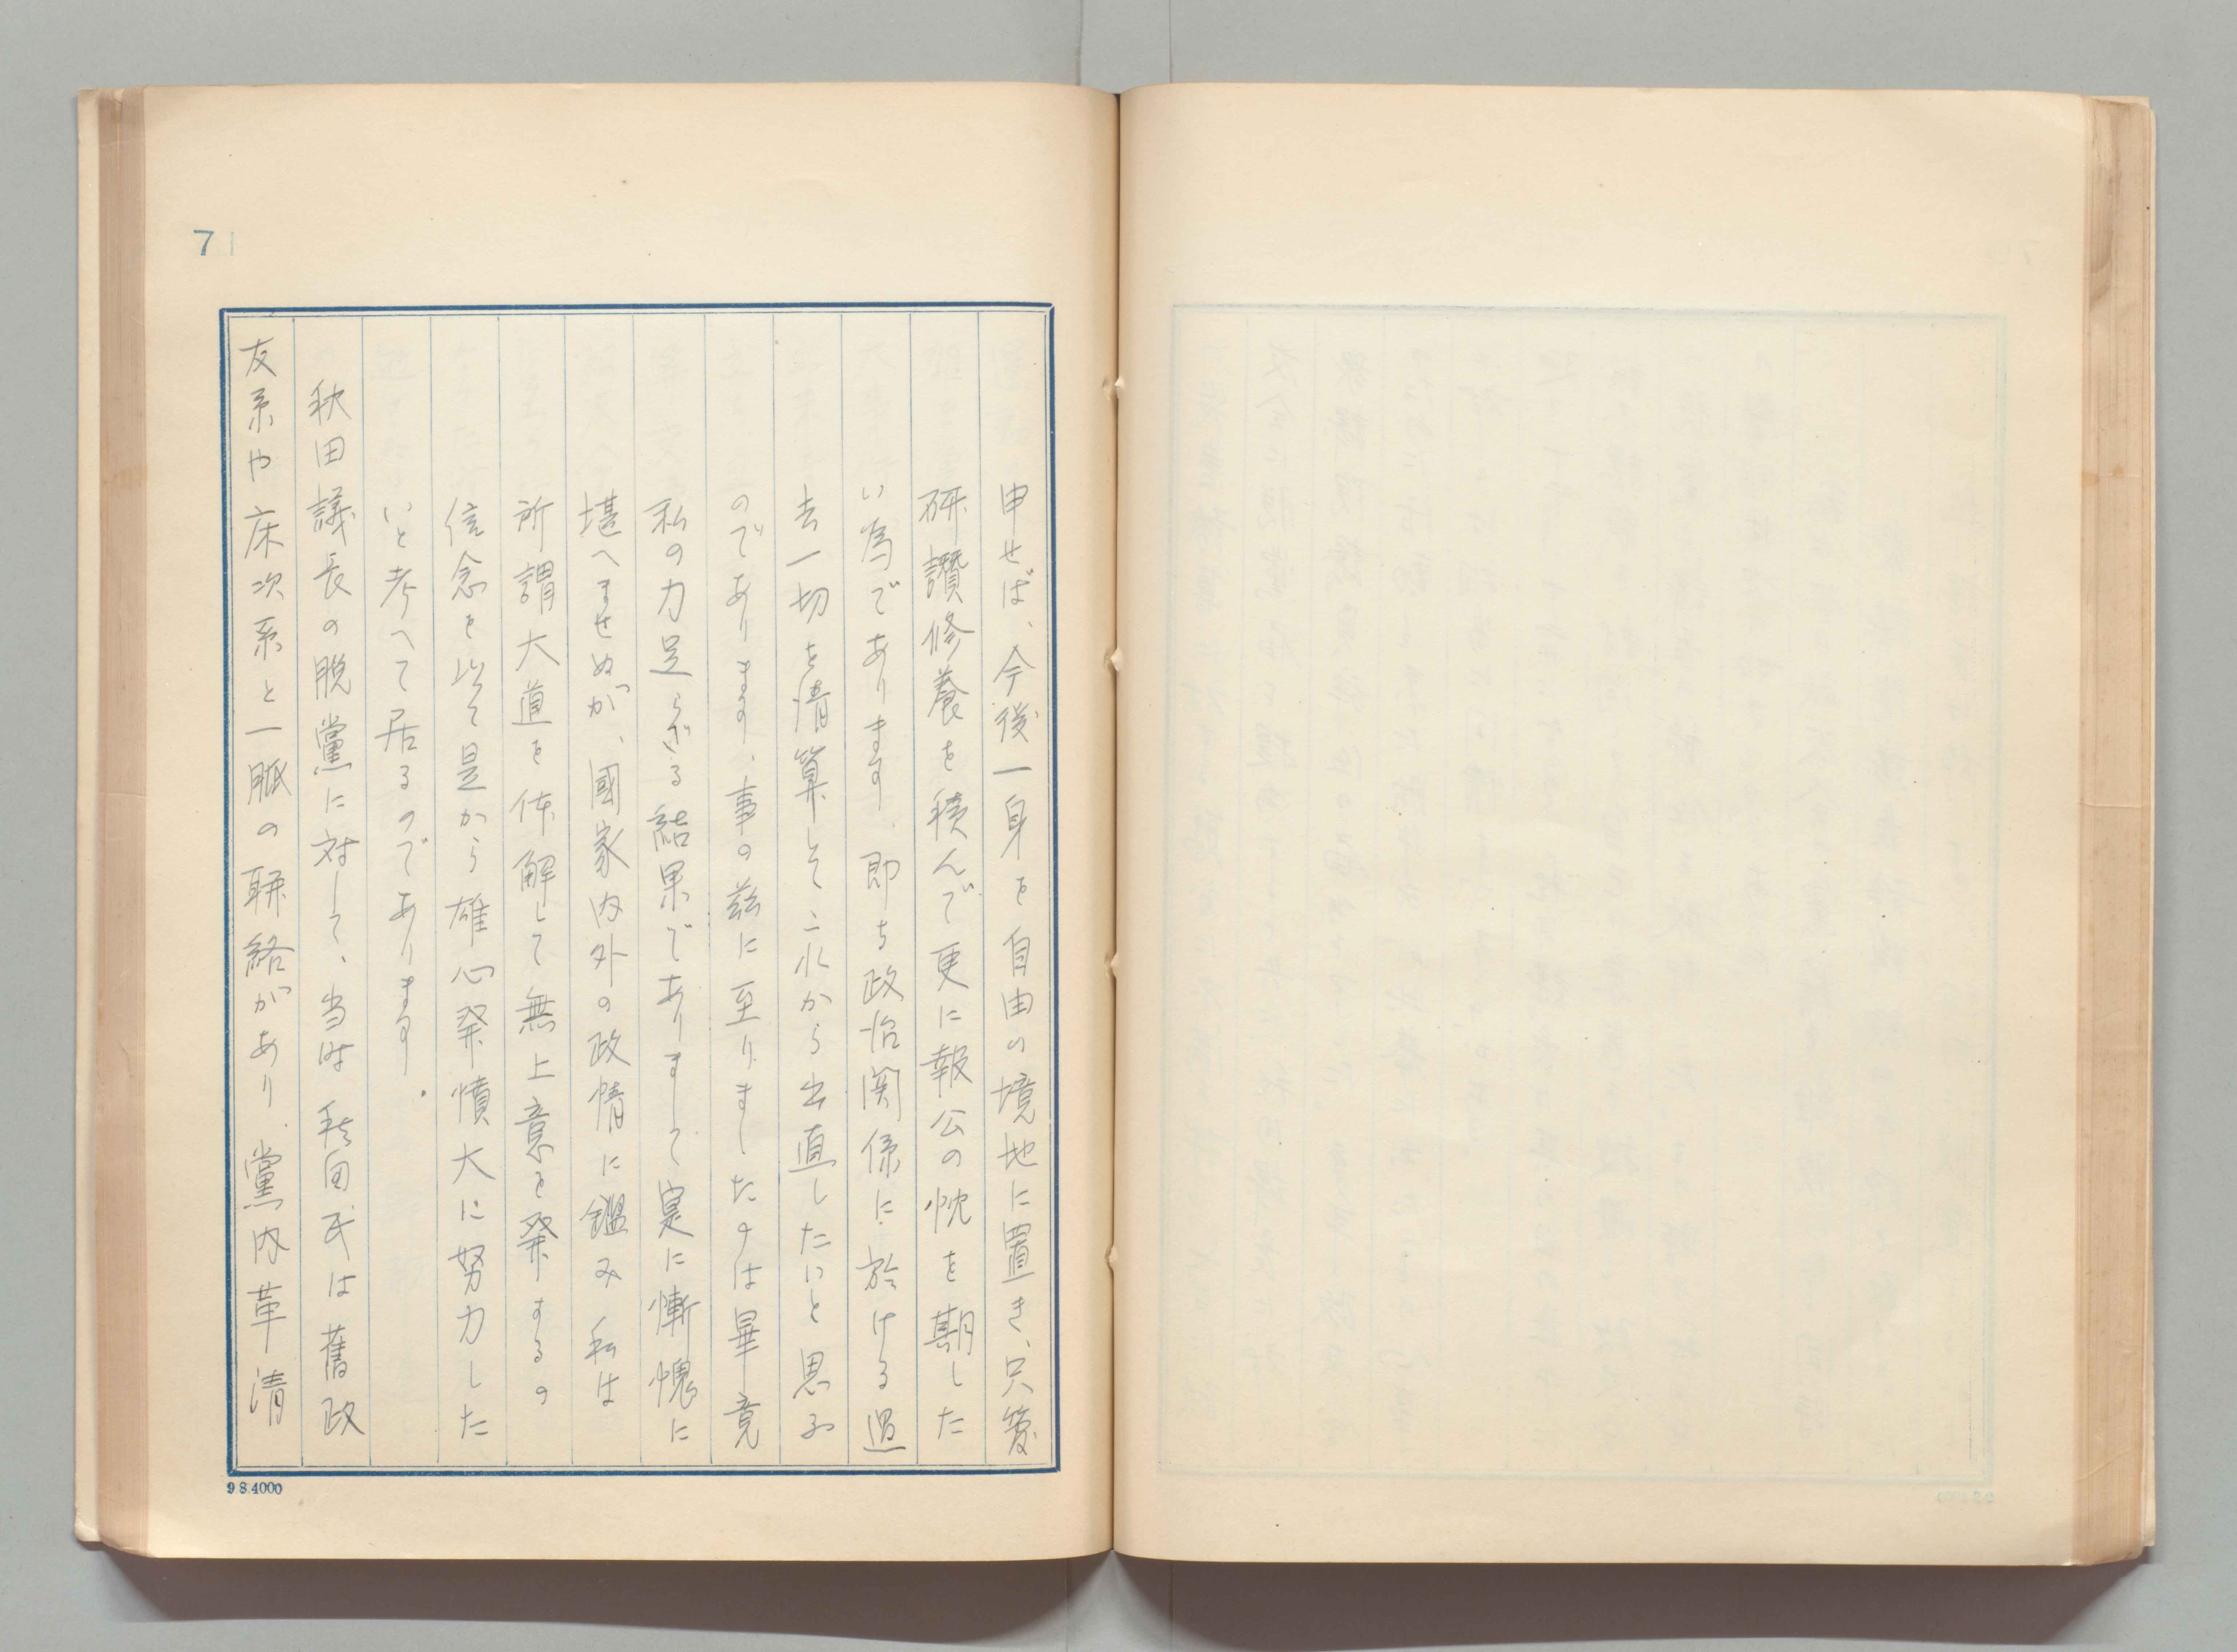 71
申せば、今後一身を自由の境地に置き、只管
研讃修養を積んで更に報公の忱を期した
い為であります、即ち政治関係に於ける過
去一切を清算してこれから出直したいと思ふ
のであります、事の茲に至りましたのは畢竟
私の力足らざる結果でありまして寔に慚愧に
堪へませぬが、國家内外の政情に鑑み私は
所謂大道を体解して無上意を発するの
信念を以て是から雄心発憤大に努力した
いと考へて居るのであります.
秋田議長の脱黨に対して、当時秋田氏は舊政
友系や床次系と一脈の聯絡があり、黨内革清
9 8.4000